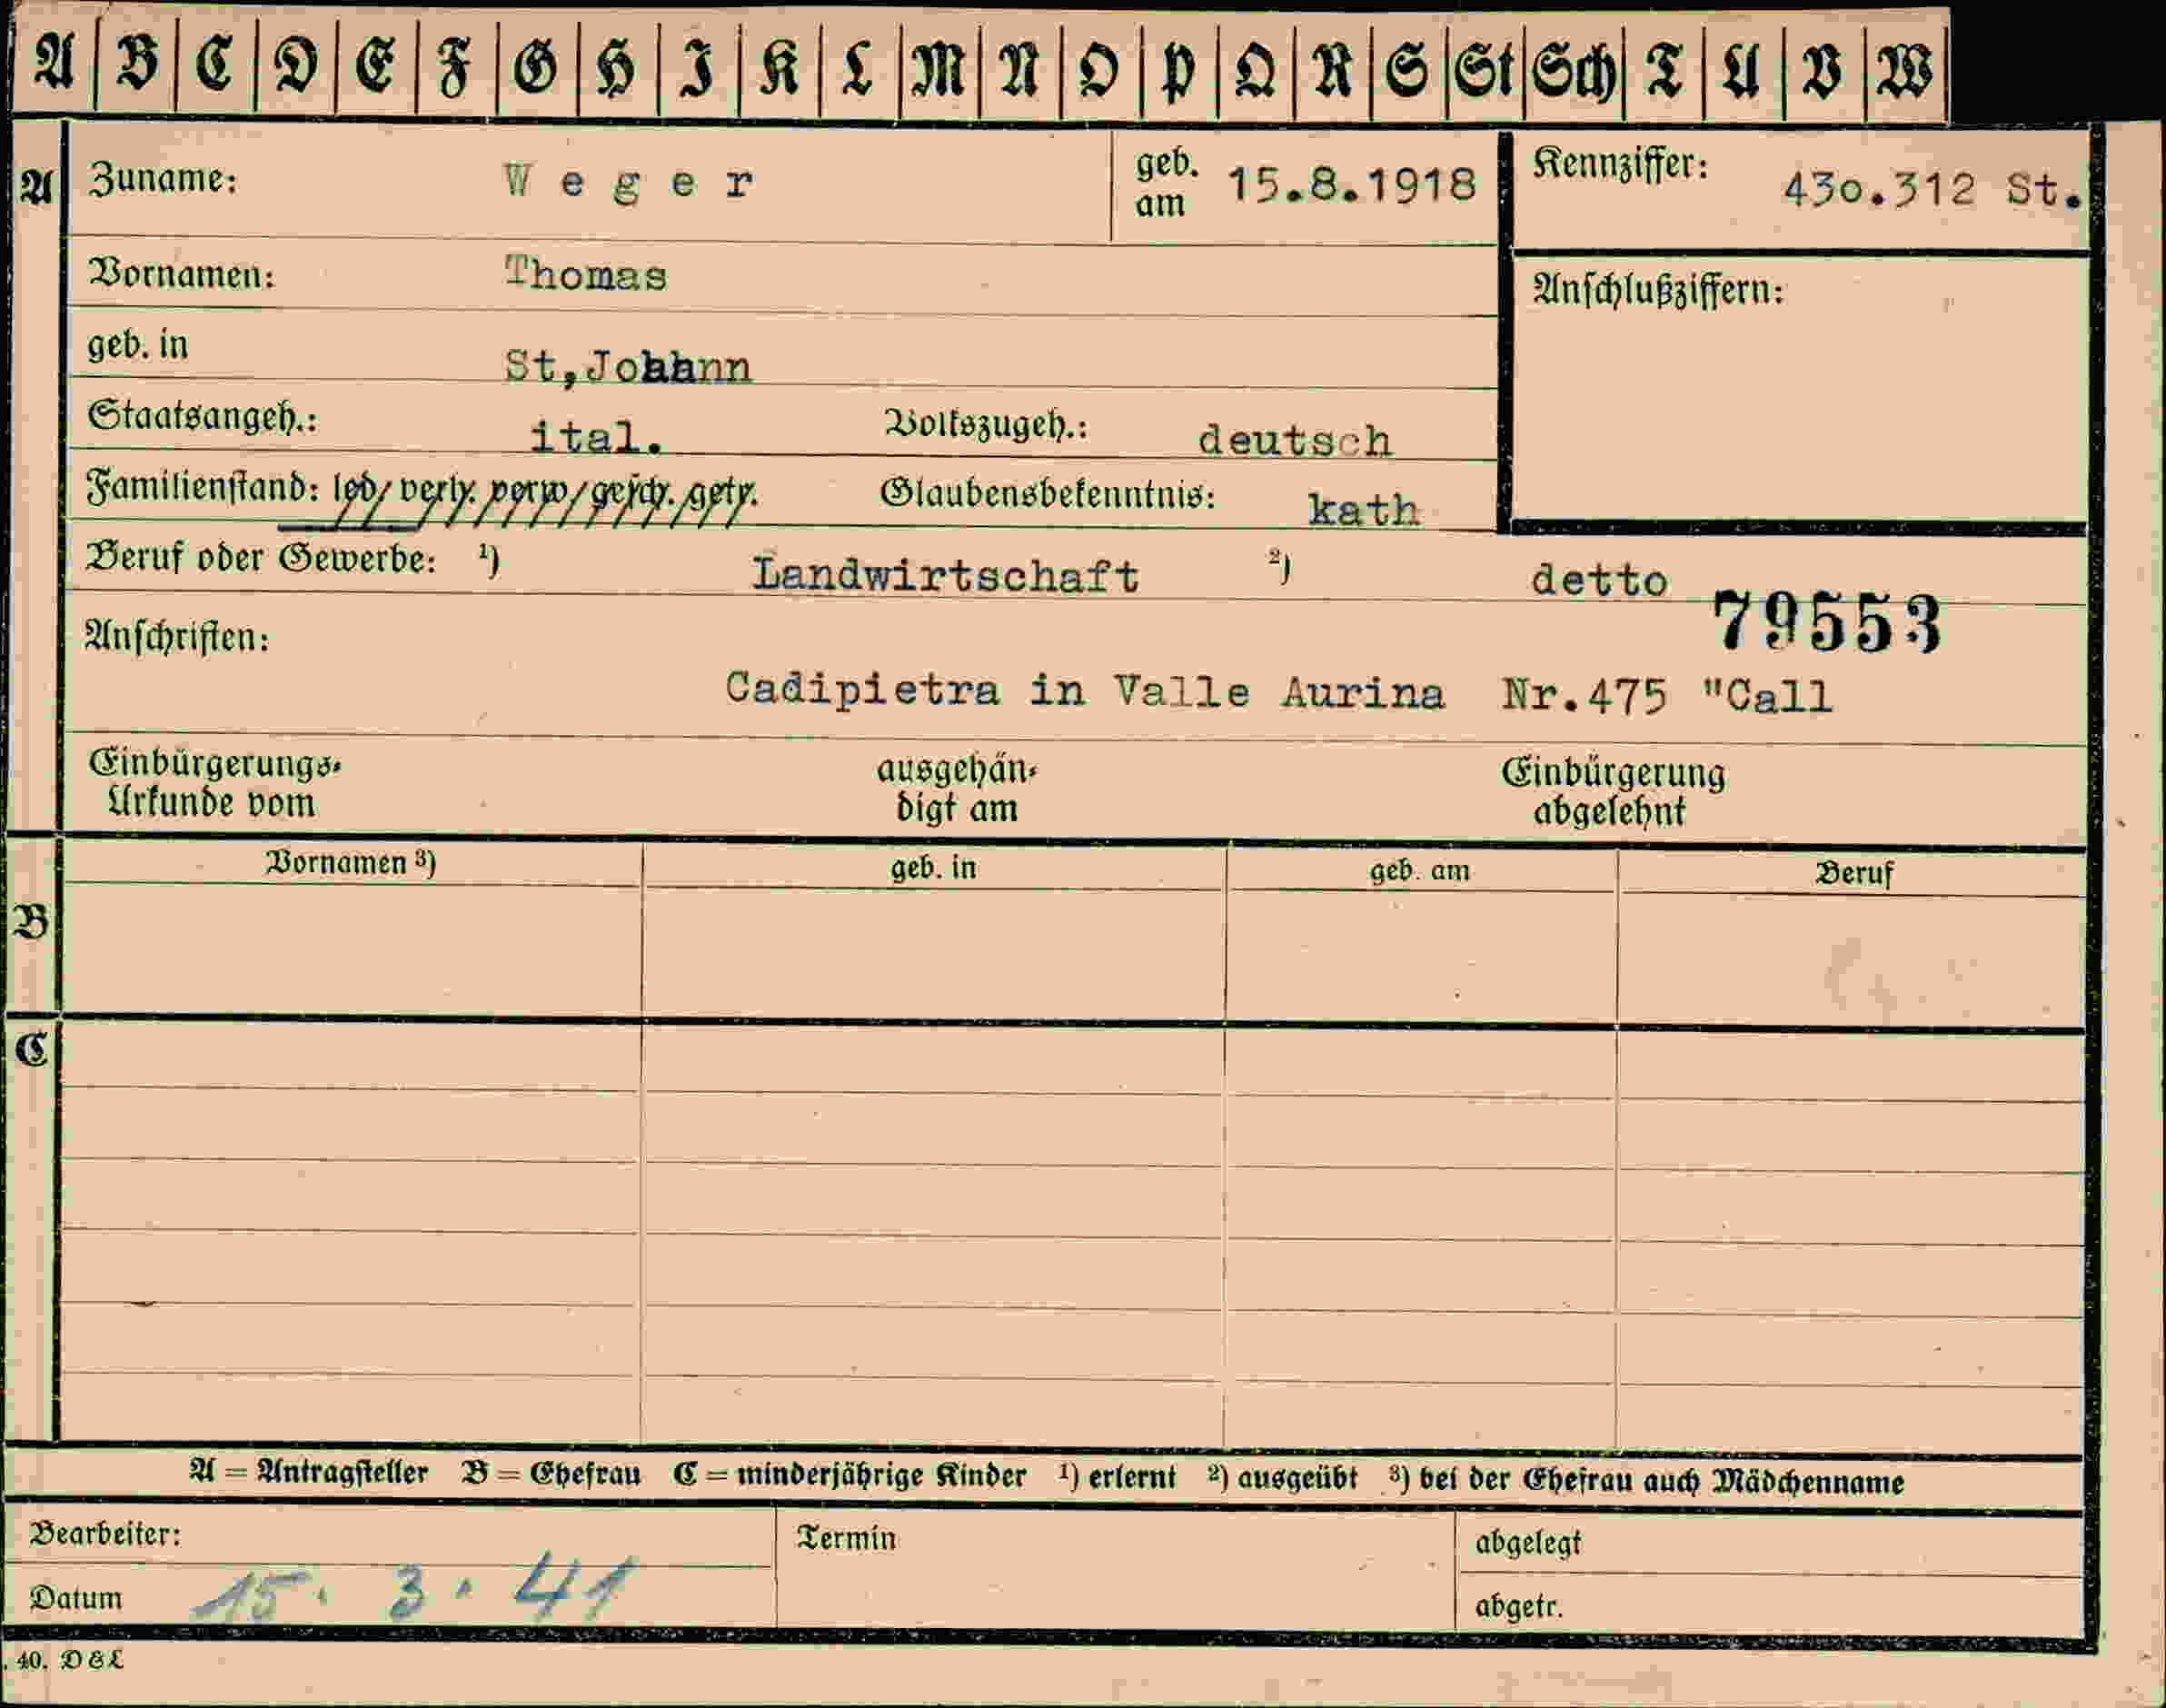 A B C D E F G H I K L M N O P Q R S St Sch T U V W
A Zuname: Weger geb. am 15.8.1918 Kennziffer: 43o.312 St.
Vornamen: Thomas Anschlußziffern:
geb. in St,Johann
Staatsangeh.: ital. Volkszugeh.: deutsch
Familienstand: led/ verh. verw/ gesch. /getr. Glaubensbekenntnis: kath
Beruf oder Gewerbe: ¹) Landwirtschaft ²) detto
79553
Anschriften:
Cadipietra in Valle Aurina Nr.475 "Call
Einbürgerungs-
Urkunde vom
ausgehän-
digt am
Einbürgerung
abgelehnt
B Vornamen ³) geb. in geb. am Beruf
C
A = Antragsteller B = Ehefrau C = minderjährige Kinder ¹) erlernt ²) ausgeübt ³) bei der Ehefrau auch Mädchenname
Bearbeiter: Termin abgelegt
Datum 15. 3. 41 abgetr.
. 40. D & L